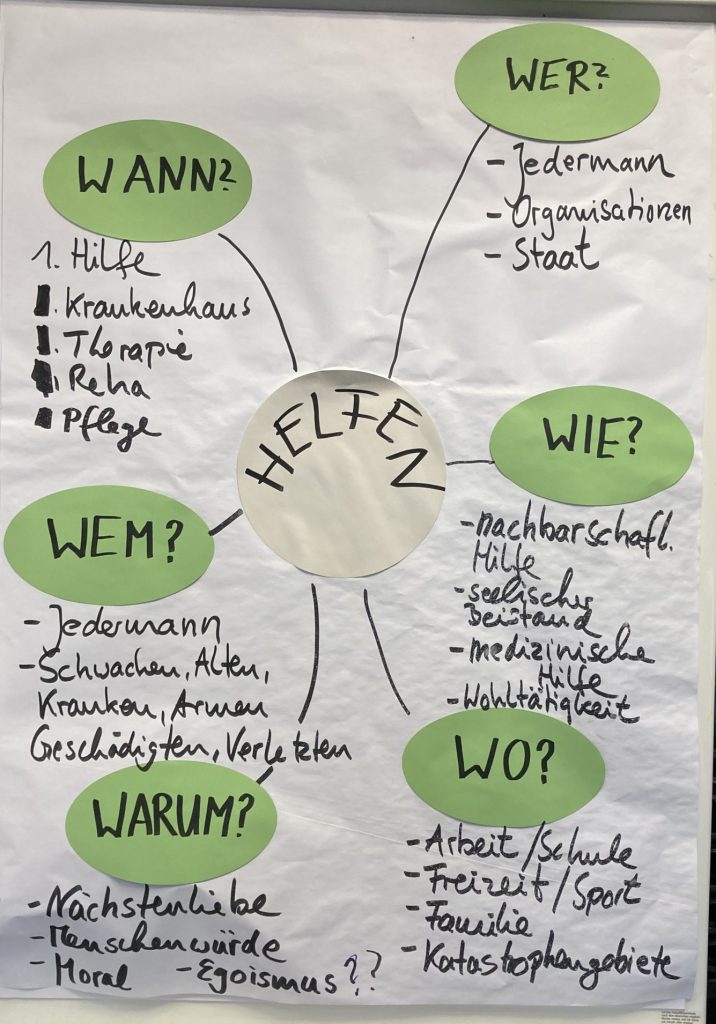 WER?
- Jedermann
- Organisationen
- Staat
WANN?
1. Hilfe
Krankenhaus
Therapie
Reha
Pflege
HELFEN
WIE?
- nachbarschaftl.
Hilfe
- seelischer
Beistand
- medizinische
Hilfe
- Wohltätigkeit
WEM?
- Jedermann
- Schwachen, Alten,
Kranken, Armen
Geschädigten, Verletzten
WO?
- Arbeit/Schule
- Freizeit/Sport
- Familie
- Katastrophengebiete
WARUM?
- Nächstenliebe
- Menschenwürde
- Moral - Egoismus??